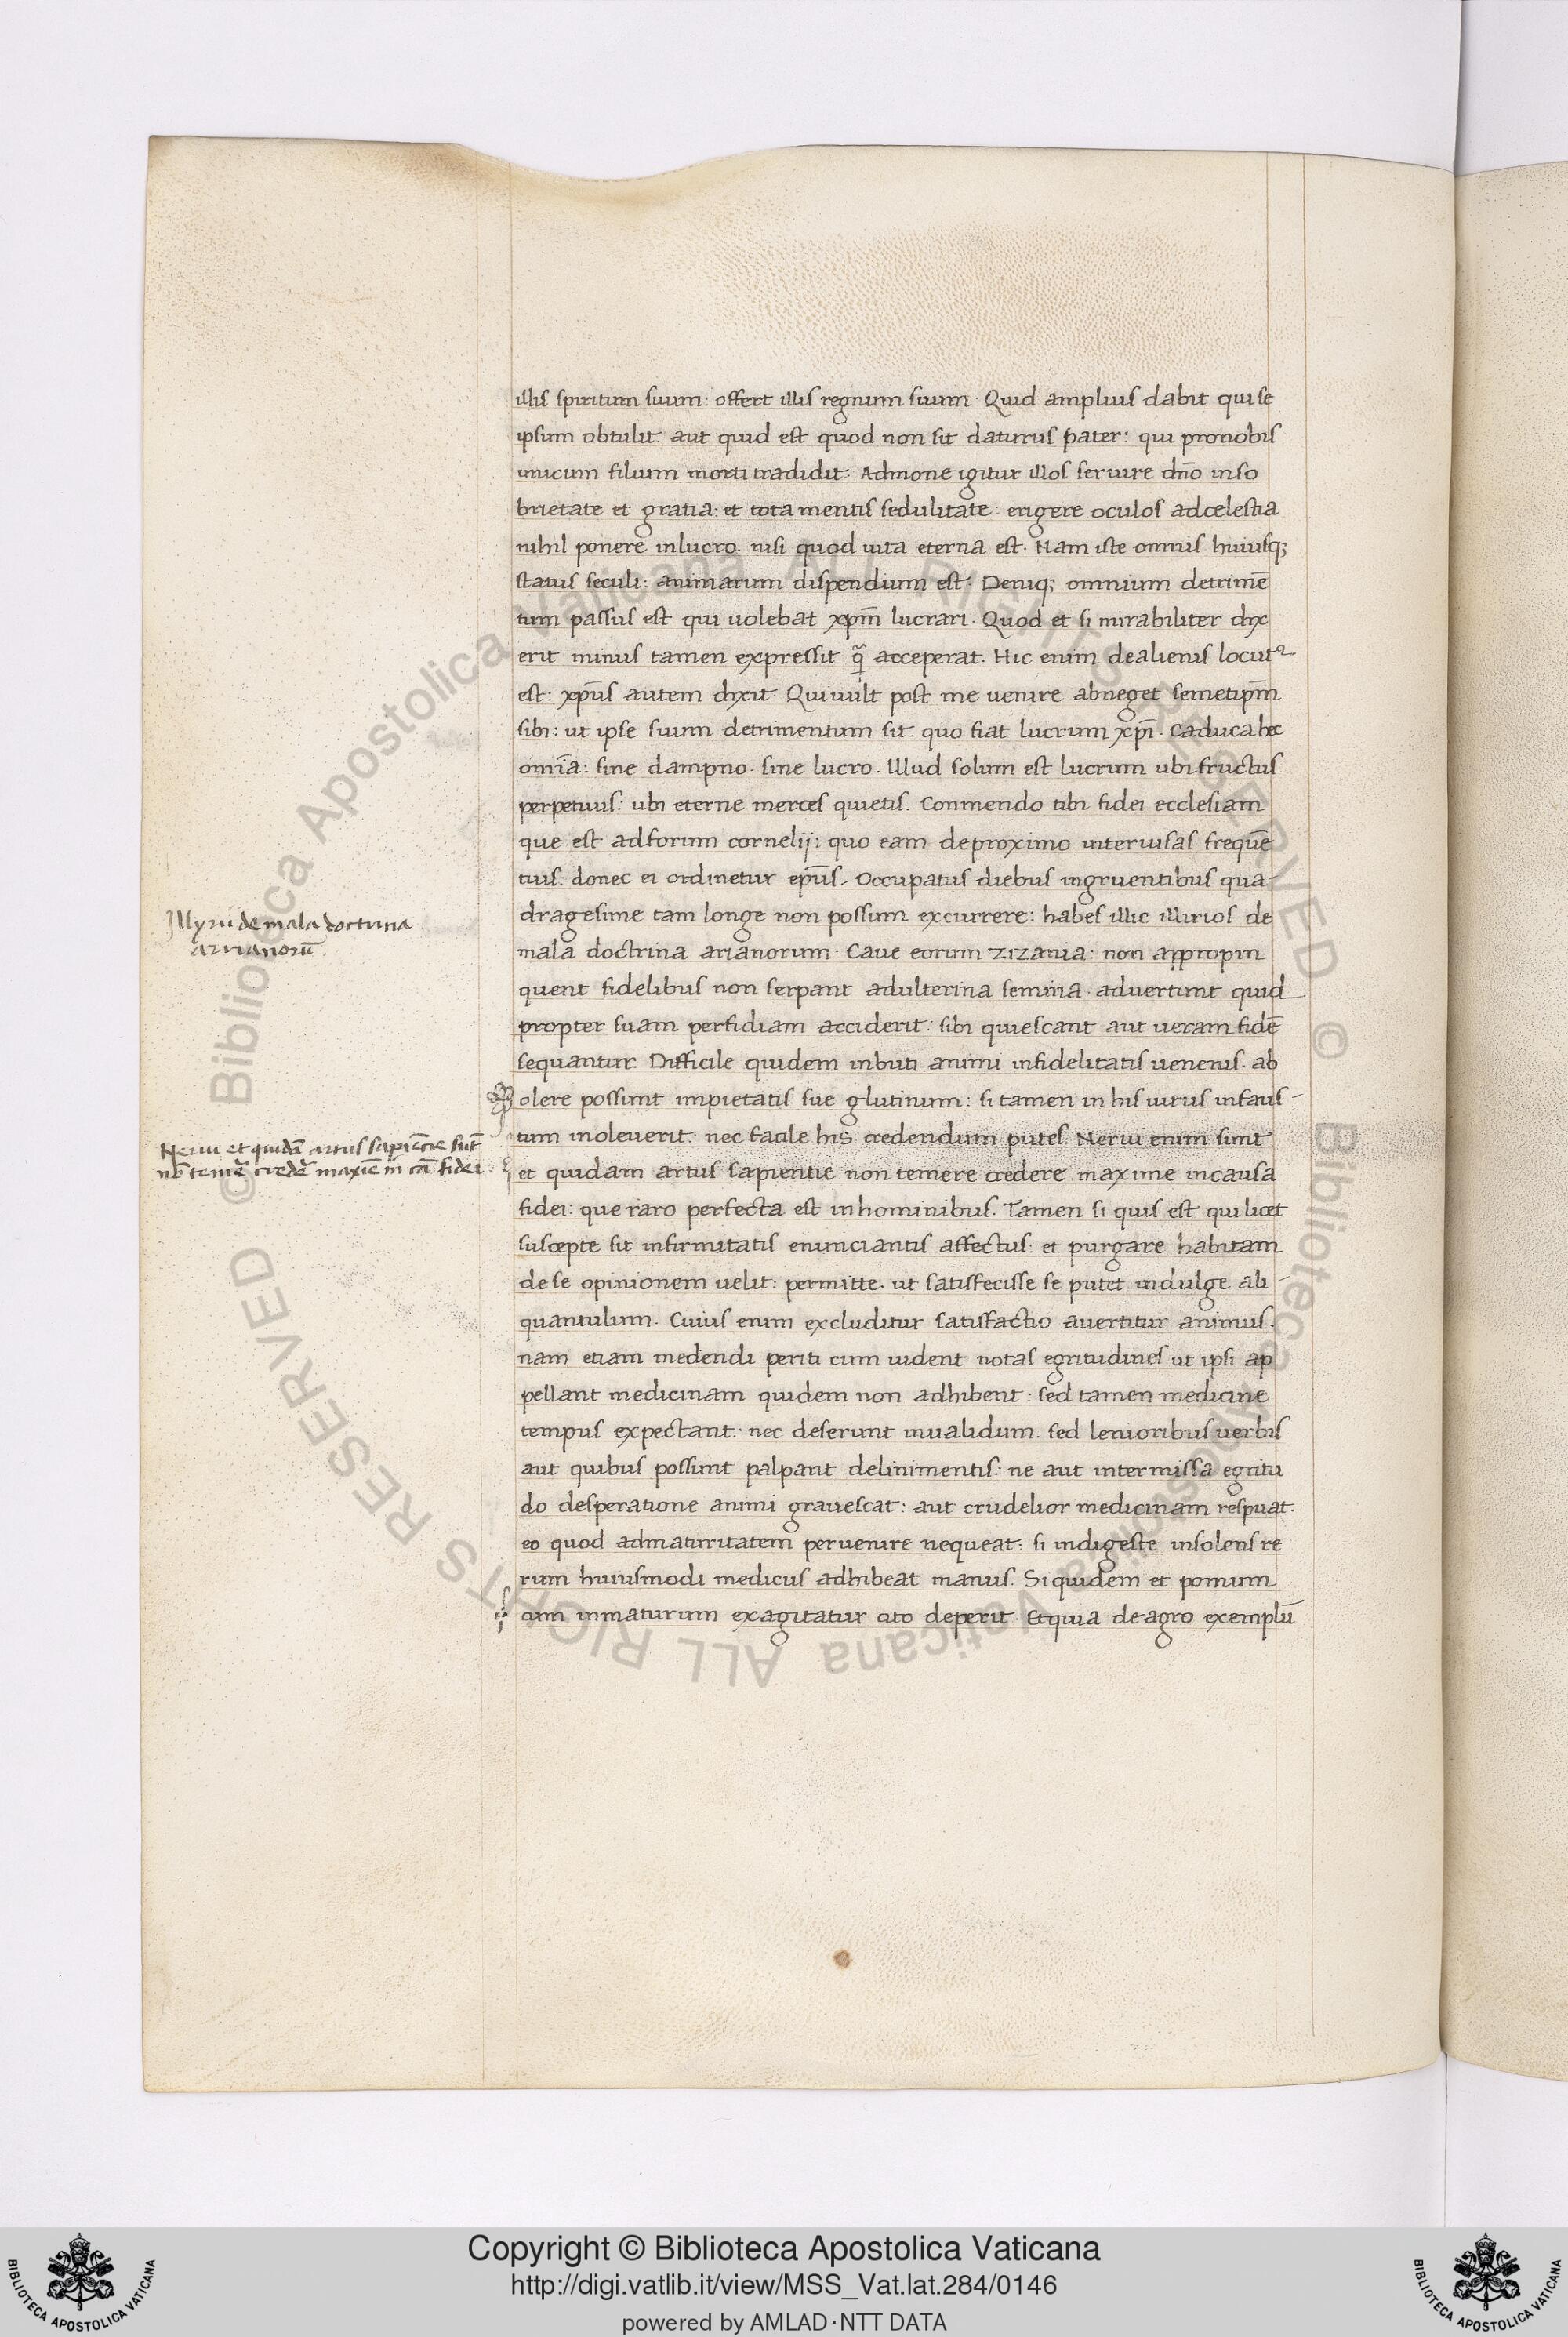 illis spiritum suum: offert illis regnum suum. Quid amplius dabit qui se
ipsum obtulit. aut quid est quod non sit daturus pater: qui pronobis
unicum filium morti tradidit. Admone igitur illos seruire dn̄o inso
brietate et gratia: et tota mentis sedulitate. erigere oculos adcelestia
nihil ponere inlucro. nisi quod uita eterna est. Nam iste omnis huiusq;
status seculi: animarum dispendium est. Deniq; omnium detrimē
tum passus est qui uolebat xpm̄ lucrari. Quod et si mirabiliter dix
erit minus tamen expressit q̄ acceperat. Hic enim dealienis locutꝰ
est: xpūs autem dixit. Quiuult post me uenire abneget semetipm̄
sibi: ut ipse suum detrimentum sit. quo fiat lucrum xpī. Caduca hec
omīa: sine dampno. sine lucro. Illud solum est lucrum ubi fructus
perpetuus: ubi eterne merces quietis. Conmendo tibi fidei ecclesiam
que est adforum cornelij: quo eam deproximo interuisas frequē
tius. donec ei ordinetur epūs. Occupatus diebus ingruentibus qua-
dragesime tam longe non possum excurrere: habes illic illirios de
mala doctrina arianorum. Caue eorum zizania: non appropin
quent fidelibus non serpant adulterina semina. aduertunt quid
propter suam perfidiam acciderit: sibi quiescant aut ueram fidē
sequantur. Difficile quidem inbuti animi infidelitatis uenenis. ab
olere possunt impietatis sue glutinum: si tamen in his uirus infaus-
tum inoleuerit. nec facile his credendum putes. Nerui enim sunt
et quidam artus sapientie non temere credere maxime incausa
fidei: que raro perfecta est inhominibus. Tamen si quis est qui licet
suscepte sit infirmitatis enunciantis affectus: et purgare habitam
dese opinionem uelit: permitte. ut satisfecisse se putet indulge ali-
quantulum. Cuius enim excluditur satisfactio auertitur animus.
nam etiam medendi periti cum uident notas egritudines ut ipsi ap
pellant medicinam quidem non adhibent: sed tamen medicine
tempus expectant. nec deserunt inualidum. sed lenioribus uerbis
aut quibus possunt palpant delinimentis: ne aut intermissa egritu
do desperatione animi grauescat: aut crudelior medicinam respuat.
eo quod admaturitatem peruenire nequeat: si indigeste insolens re
rum huiusmodi medicus adhibeat manus. Siquidem et pomum
cum inmaturum exagitatur cito deperit. Etquia deagro exemplū
Illyrii de mala doctrina
arrianorū
Nerui et quidā artus sapiētie sūt
nō temē credē maxīe in cā fidei
Copyright © Biblioteca Apostolica Vaticana
http://digi.vatlib.it/view/MSS_Vat.lat.284/0146
powered by AMLAD·NTT DATA
BIBLIOTECA APOSTOLICA VATICANA
BIBLIOTECA APOSTOLICA VATICANA
© Biblioteca Apostolica Vaticana ALL RIGHTS RESERVED
© Biblioteca Apostolica Vaticana ALL RIGHTS RESERVED